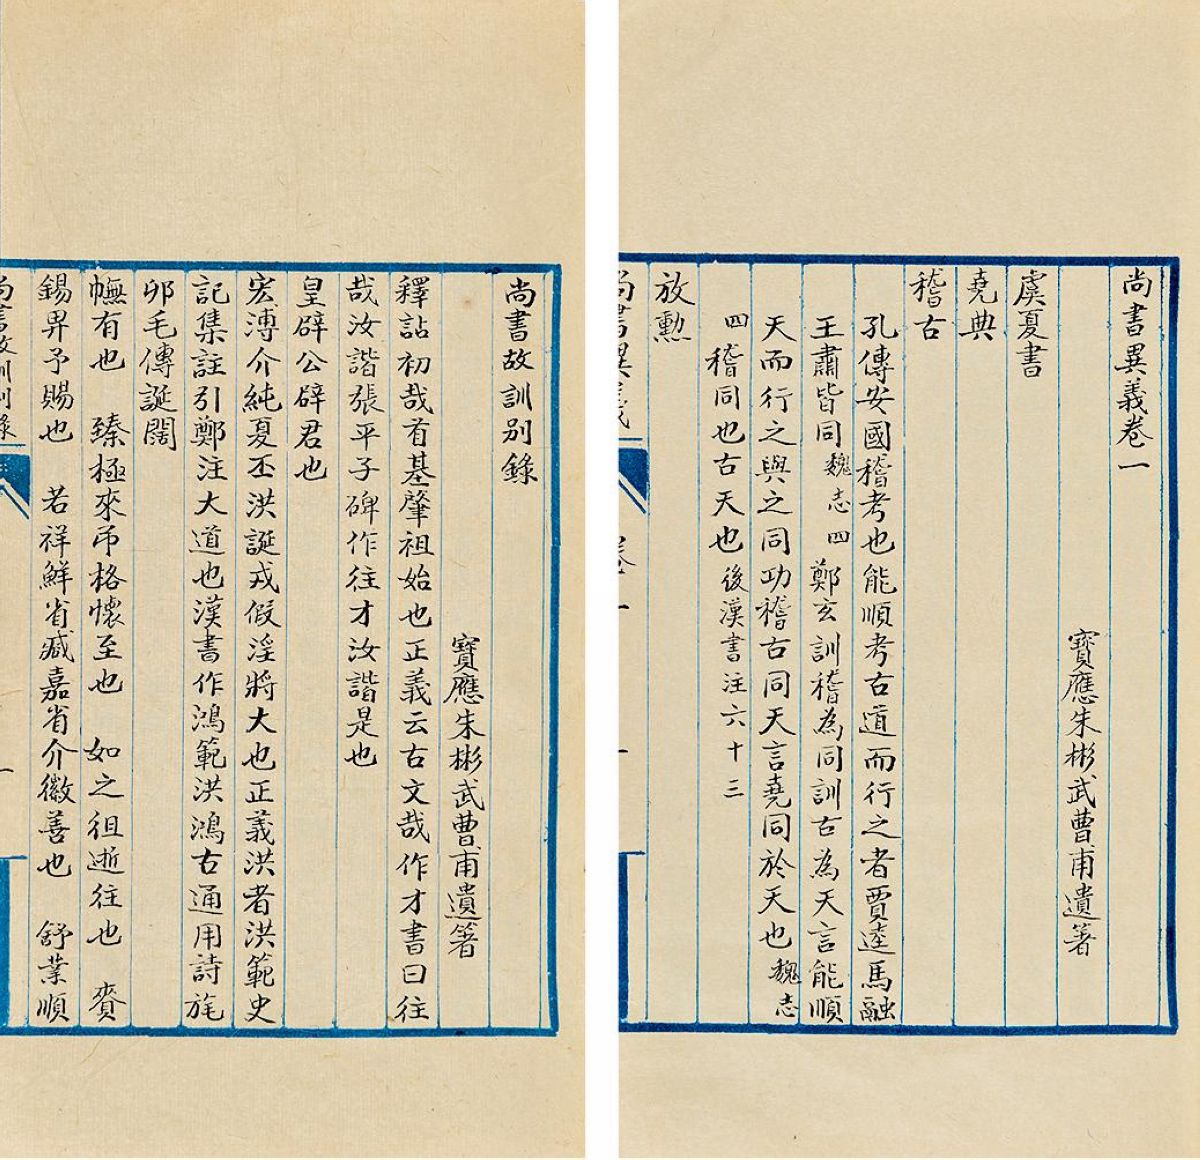 尚書異義卷一
寶應朱彬武曹甫遺箸
虞夏書
堯典
稽古
孔傳安國稽考也能順考古道而行之者賈逵馬融
王肅皆同魏志四 鄭玄訓稽為同訓古為天言能順
天而行之與之同功稽古同天言堯同於天也魏志
四 稽同也古天也後漢書注六十三
放勲
尚書異義 卷一 一
尚書故訓别錄
寶應朱彬武曹甫遺箸
釋詁初哉首基肇祖始也正義云古文哉作才書曰往
哉汝諧張平子碑作往才汝諧是也
皇辟公辟君也
宏溥介純夏丕洪誕戎假淫將大也正義洪者洪範史
記集註引鄭注大道也漢書作鴻範洪鴻古通用詩旄
邱毛傳誕闊
幠有也 臻極來弔格懷至也 如之徂逝往也 賚
錫畀予賜也 若祥鮮省臧嘉省介徽善也 舒業順
尚書故訓别錄 一